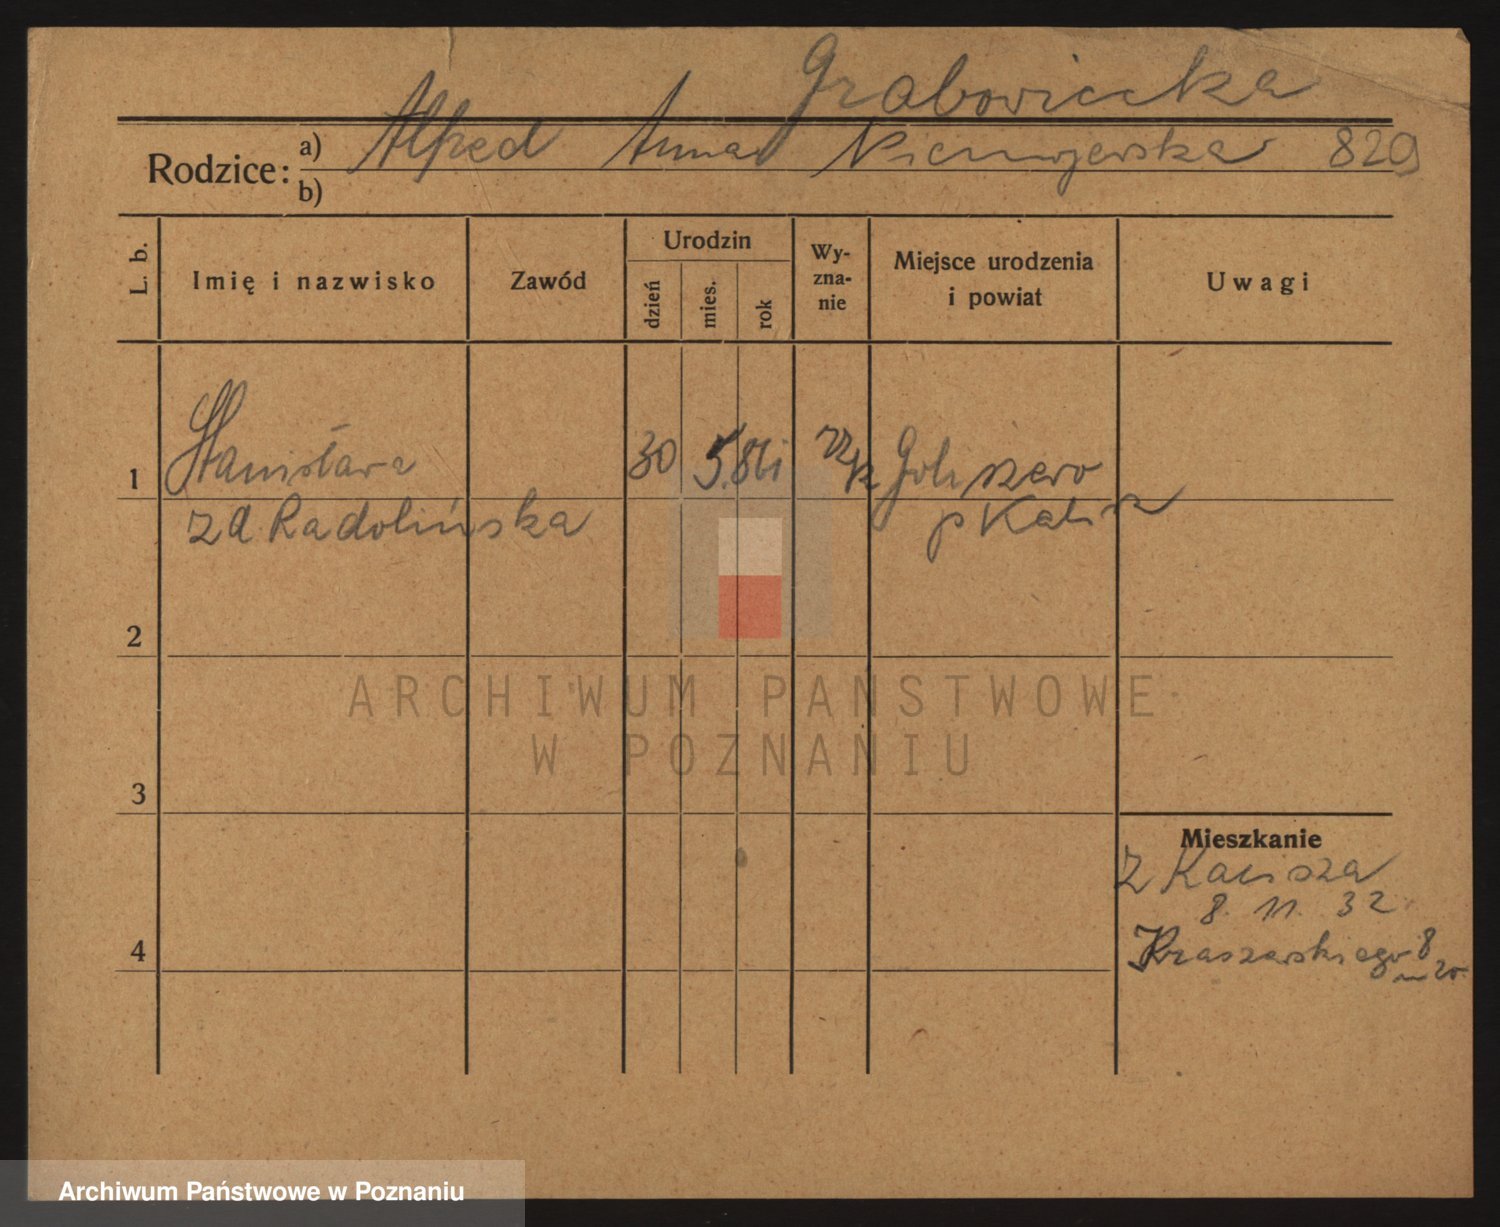 Grabowiecka
Rodzice: a) Alfred Anna Niemojewska 829
b)
L. b. Imię i nazwisko Zawód Urodzin dzień mies. rok Wy-zna-nie Miejsce urodzenia i powiat Uwagi
1 Stanisława 30 5. 86 rz k
z d. Radolińska p Kalisz
2
ARCHIWUM PAŃSTWOWE
W POZNANIU
3
Mieszkanie
z Kalisza
8. 11. 32
4 Kraszewskiego 8
m 20.
Archiwum Państwowe w Poznaniu